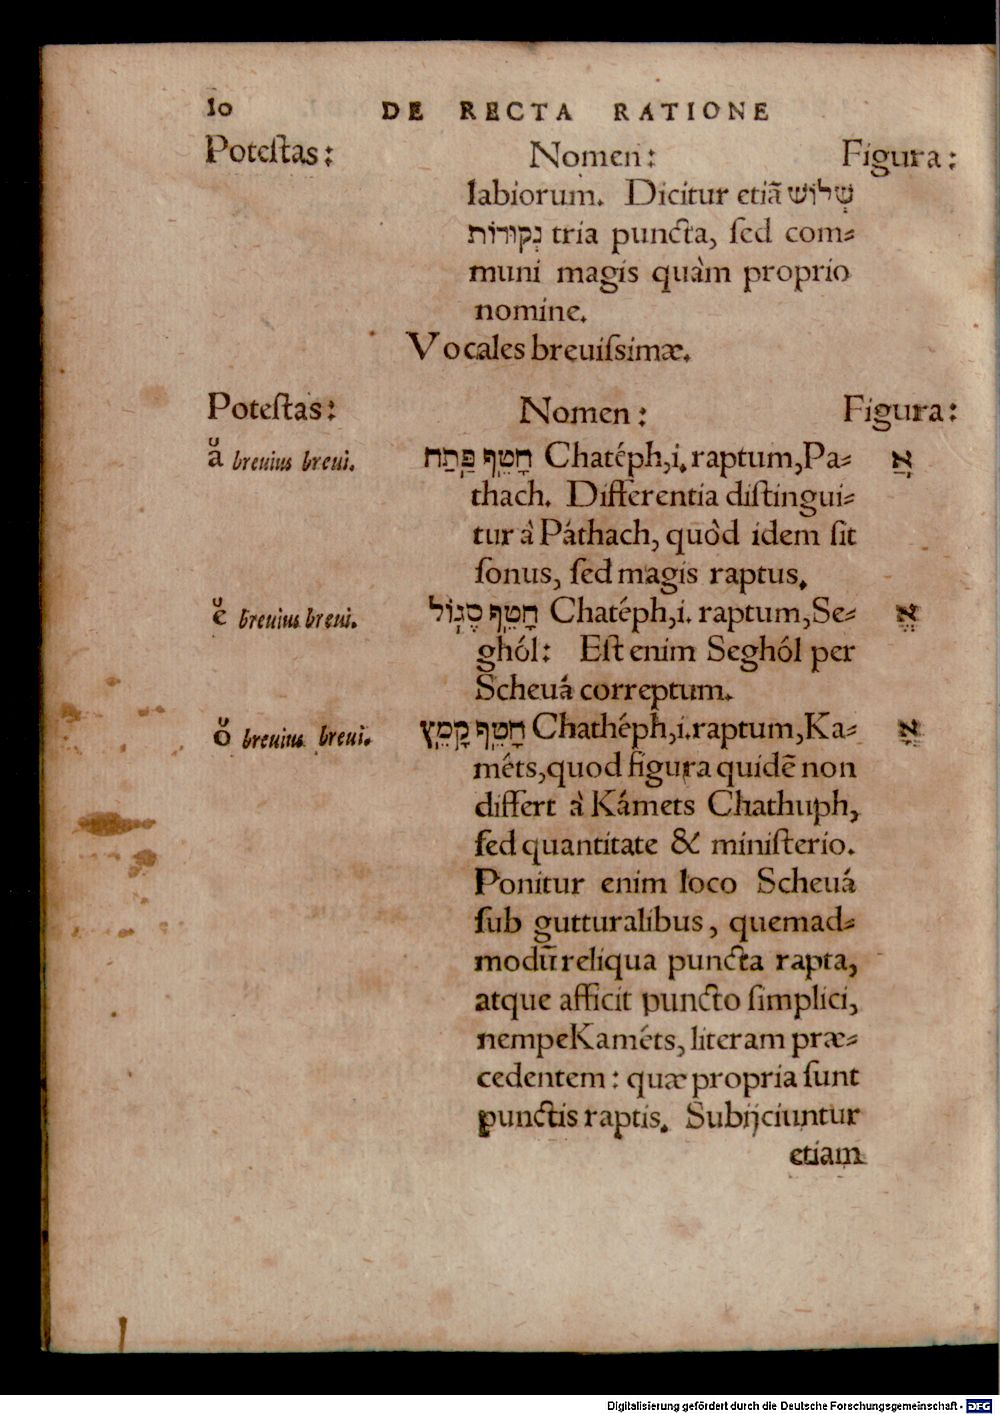 10 DE RECTA RATIONE
Poteſtas: Nomen: Figura:
labiorum. Dicitur etiā שְׁלוֹשׁ
נְקוּדוֹת tria puncta, ſed com⸗
muni magis quàm proprio
nomine.
Vocales breuiſsimæ.
Poteſtas: Nomen: Figura:
ă breuius breui. חָטֵף פַּתַח Chatéph,i. raptum,Pa⸗ אֲ
thach. Differentia diſtingui⸗
tur à Páthach, quòd idem ſit
ſonus, ſed magis raptus.
ĕ breuius breui. חָטֵף סֶגוֹל Chatéph,i. raptum,Se⸗ אֱ
ghól: Eſt enim Seghól per
Scheuá correptum.
ŏ breuius breui. חָטֵף קָמֵץ Chathéph,i.raptum,Ka⸗ אֳ
méts,quod figura quidē non
differt à Kámets Chathuph,
ſed quantitate & miniſterio.
Ponitur enim loco Scheuá
ſub gutturalibus, quemad⸗
modū reliqua puncta rapta,
atque afficit puncto ſimplici,
nempe Kaméts, literam præ⸗
cedentem: quæ propria ſunt
punctis raptis. Subijciuntur
etiam
Digitalisierung gefördert durch die Deutsche Forschungsgemeinschaft - DFG